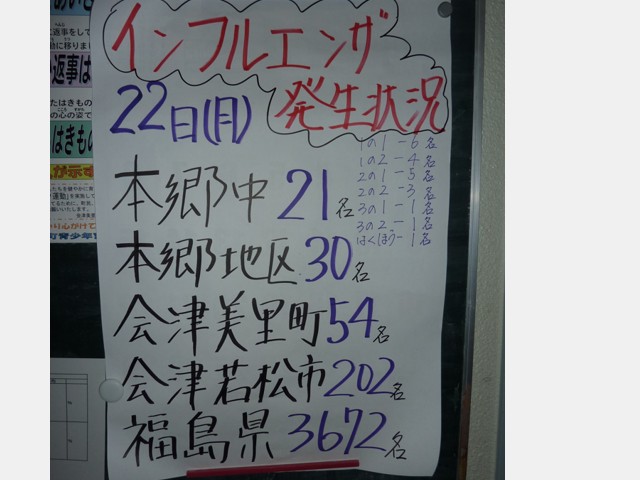 インフルエンザ
発生状況
22日(月)
1の1-6名
1の2-4名
2の1-5名
2の2-3名
3の1-1名
3の2-1名
はくほう-1名
本郷中 21名
本郷地区 30名
会津美里町 54名
会津若松市 202名
福島県 3672名
返事は
はきもの
が示す